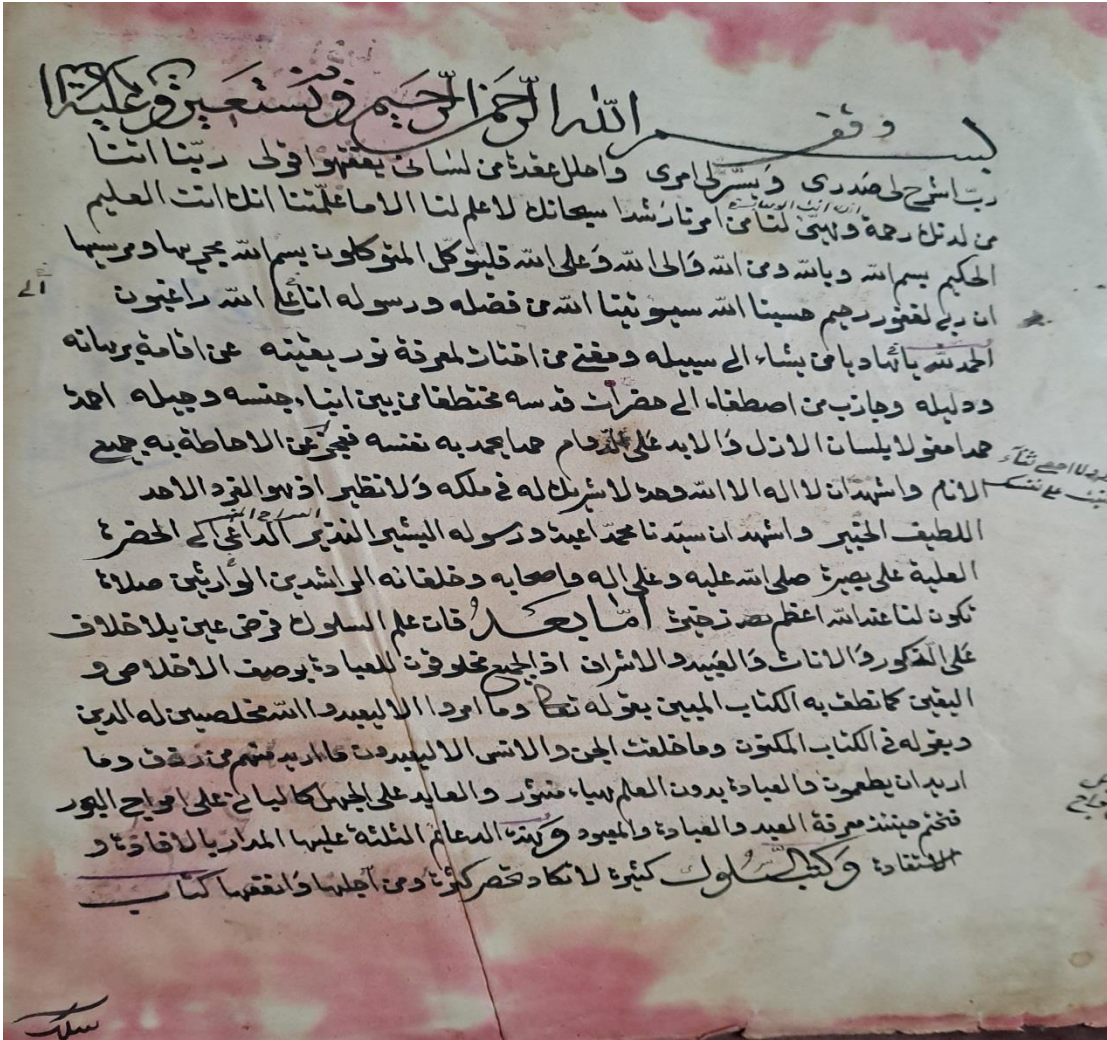 وقف
بسم الله الرحمن الرحيم وبه نستعين وعليه
رب اشرح لى صدرى وَيسّر لى امرى واحلل عقدة من لسانى يفقهوا قولى ربّنا اتنا
من لدنك رحمة وهيئ لنا من امرنا رشدا سبحانك لا علم لنا الا ما علّمتنا انك انت العليم
الحكيم بسم الله وبالله ومن الله وَالى الله وَعلى الله فليتوكّل المتوكلون بسم الله مجريها ومرسيها
ان ربي لغفور رحيم حسبنا الله سيوتينا الله من فضله ورسوله انا الله راغبون
الى
الحمد لله يا من يشاء الى سبيله من اختار لمعرفة نور يقينه عن اقامة برهانه
ودليله وجاذب من اصطفاه الى حضرات قدسه مختطفا من بين ابناء جنسه وجيله احمده
حمدا مقولا بلسان الازل وَالابد على حمدا يحمد به نفسه فعجز عن الاحاطة به جميع
لا احصى ثناء
على نفسك
الانام واشهد ان لا اله الا الله وحده لا شريك له فى ملكه وَلا نظير اذ هو الفرد الاحد
اللطيف الخبير واشهد ان سيّدنا محمدا عبده ورسوله البشير النذير الداعى الى الحضرة
العلية على بصيرة صلى الله عليه وعلى اله واصحابه وخلفائه الراشدين الوارثين صلاة
تكون لنا عند الله اعظم ذخيرة امّا بعد فان علم السلوك فرض عين بلا خلاف
على الذكور وَالاناث وَالعبيد والاشراف اذ الجميع مخلوقون للعبادة بوصف الاخلاص و
اليقين كما نطق به الكتاب المبين بقوله تعالى وما امروا الا ليعبدوا الله مخلصين له الدين
وبقوله فى الكتاب المكنون وما خلقت الجن والانس الا ليعبدون ما اريد منهم من رزق وما
اريد ان يطعمون والعبادة بدون العلم هباء منثور والعابد على الجهل كالبانى على امواج البحور
فتحتم حينئذ معرفة العبد والعبادة والمعبود وهذه الدعائم الثلثة عليها المدار بالافادة و
الاستفادة وكتب السلوك كثيرة لا تكاد تحصر كثرة ومن اجلها وَانفعها كتاب
سلك